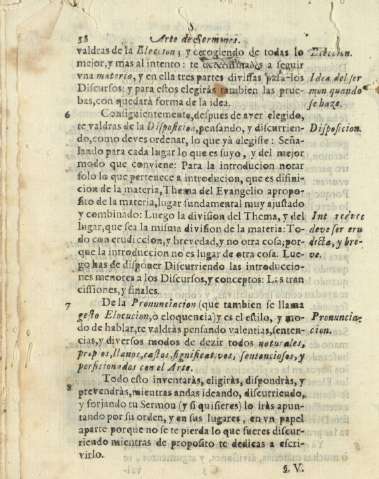 58 Arte de Sermones.
valdras de la Eleccion; y escogiendo de todas lo
mejor, y mas al intento: te a seguir
vna materia, y en ella tres partes divissas para los
Discursos: y para estos elegirás tambien las prue-
bas, con quedará forma de la idea.
Eleccion.
Idea del ser
mon quando
se haze.
6 Consiguientemente, despues de aver elegido,
te valdras de la Disposicion, pensando, y discurrien-
do, como deves ordenar, lo que yà elegiste: Seña-
lando para cada lugar lo que es suyo, y del mejor
modo que conviene: Para la introducion notar
solo lo que pertenece a introducion, que es difini-
cion de la materia, Thema del Evangelio apropo-
sito de la materia, lugar fundamental muy ajustado
y combinado: Luego la division del Thema, y del
lugar, que sea la misma division de la materia: To-
do con erudiccion, y brevedad, y no otra cosa, por-
que la introduccion no es lugar de otra cosa. Lue-
go has de disponer Discurriendo las introduccio-
nes menores a los Discursos, y conceptos: Las tran
cissiones, y finales.
Disposicion.
deve ser eru
dicta, y bre-
ve.
7 De la Pronunciacion (que tambien se llama
gesto Elocucion, o eloquencia) y es el estilo, y mo-
do de hablar, te valdràs pensando valentias, senten-
cias, y diversos modos de dezir todos naturales,
propios, llanos, castos, significativos, sentenciosos, y
perficionados con el Arte.
Pronuncia-
cion.
8 Todo esto inventarás, eligirás, dispondrás, y
prevendrás, mientras andas ideando, discurriendo,
y forjando tu Sermon (y si quisieres) lo iràs apun-
tando por su orden, y en sus lugares, en vn papel
aparte porque no se te pierda lo que fueres discur-
riendo mientras de proposito te dedicas a escri-
virlo.
§. V.